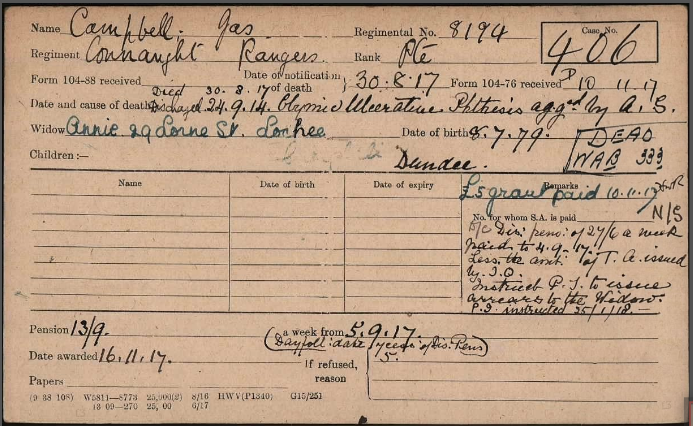 Name Campbell. Jas. Regimental No. 8194
Case No. 406
Regiment Connaught Rangers Rank Pte
Form 104-88 received Date of notification of death } 30.8.17 Form 104-76 received P 10 11.17
Died 30.8.17
Date and cause of death Discharged 24.9.14. Chronic Ulcerative Phthisis aggd by A.S.
Widow Annie 29 Lorne St. Lochee Date of birth 8.7.79.
DEAD
WAB 333
Children :— Dundee.
Name Date of birth Date of expiry Remarks
£5 grant paid 10.11.17
N/S
No. for whom S.A. is paid
Dis. pens. of 27/6 a week
paid to 4.9.17.
Less the amt. of T.A. issued
by I.O.
Instruct P.I. to issue
arrears to the Widow.
P.I. instructed 25/1/18.—
Pension 13/9. a week from 5.9.17.
(Day foll: date of Dis. Pens)
5.
Date awarded 16.11.17. If refused, reason
Papers
(9 38 108) W5811—8773 25,000(2) 8/16 HWV(P1340) G15/251
13 09—270 25, 00 6/17